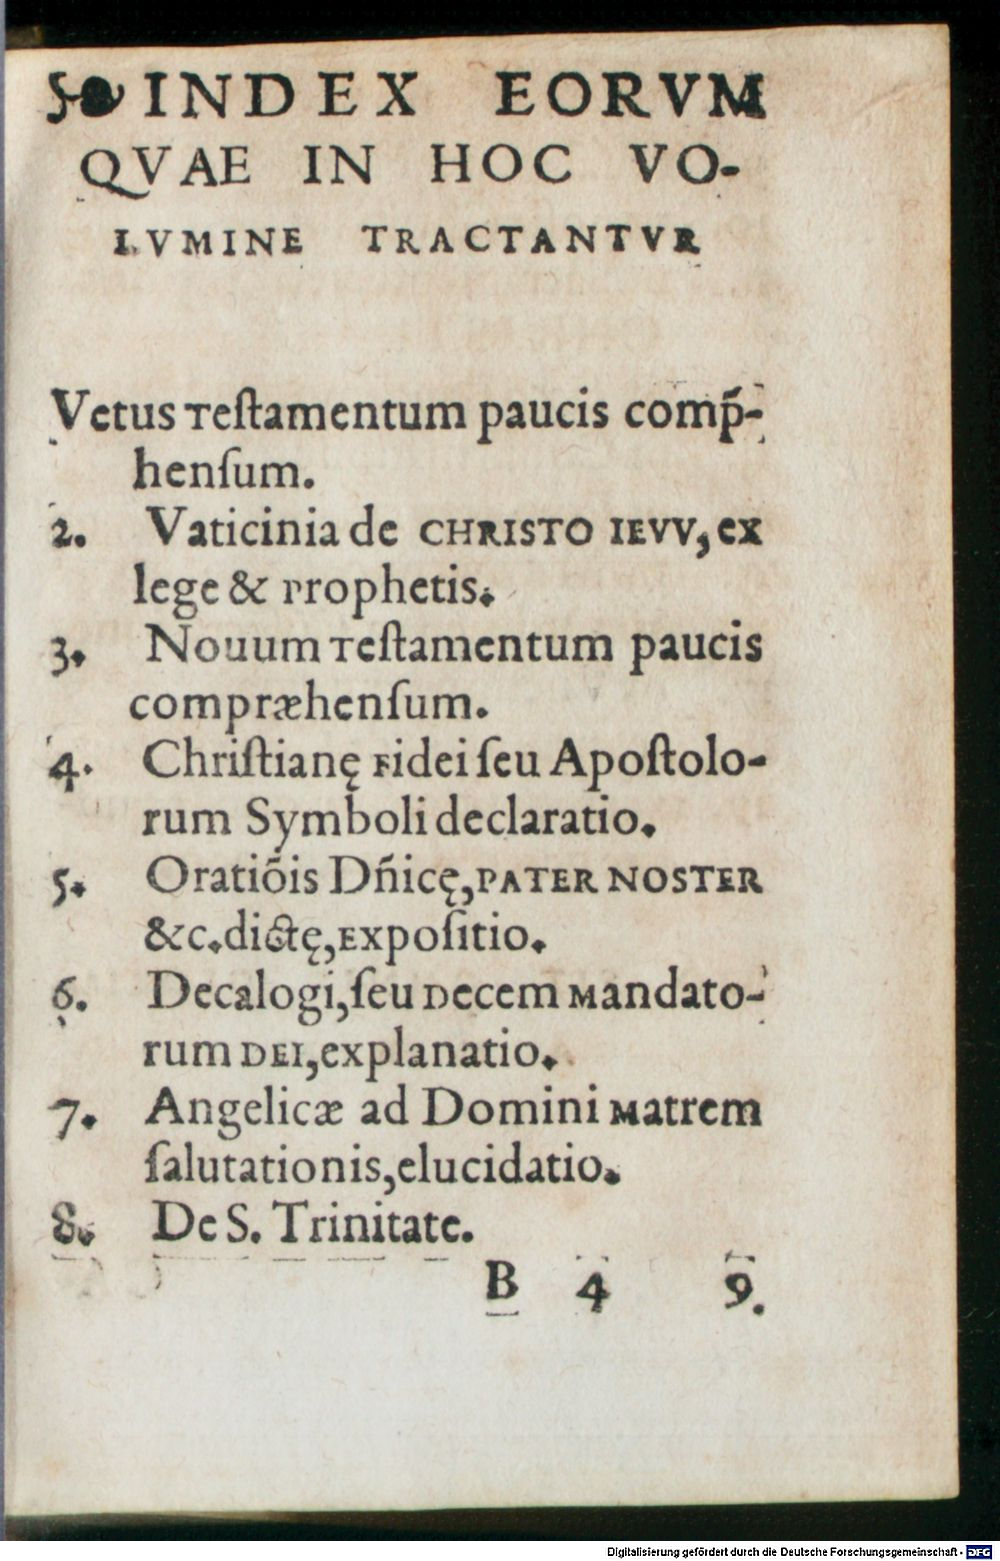 ❧INDEX EORVM
QVAE IN HOC VO-
LVMINE TRACTANTVR
Vetus Teſtamentum paucis comp̃-
henſum.
2. Vaticinia de CHRISTO IEVV, ex
lege & Prophetis.
3. Nouum Teſtamentum paucis
compræhenſum.
4. Chriſtianę Fidei ſeu Apoſtolo-
rum Symboli declaratio.
5. Oratiõis Dñicę, PATER NOSTER
&c. dictę, Expoſitio.
6. Decalogi, ſeu Decem Mandato-
rum DEI, explanatio.
7. Angelicæ ad Domini Matrem
ſalutationis, elucidatio.
8. De S. Trinitate.
B 4 9.
Digitalisierung gefördert durch die Deutsche Forschungsgemeinschaft - DFG